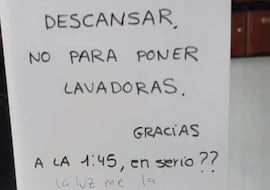 DESCANSAR,
NO PARA PONER
LAVADORAS.
GRACIAS
A LA 1:45, en serio??
la luz me la